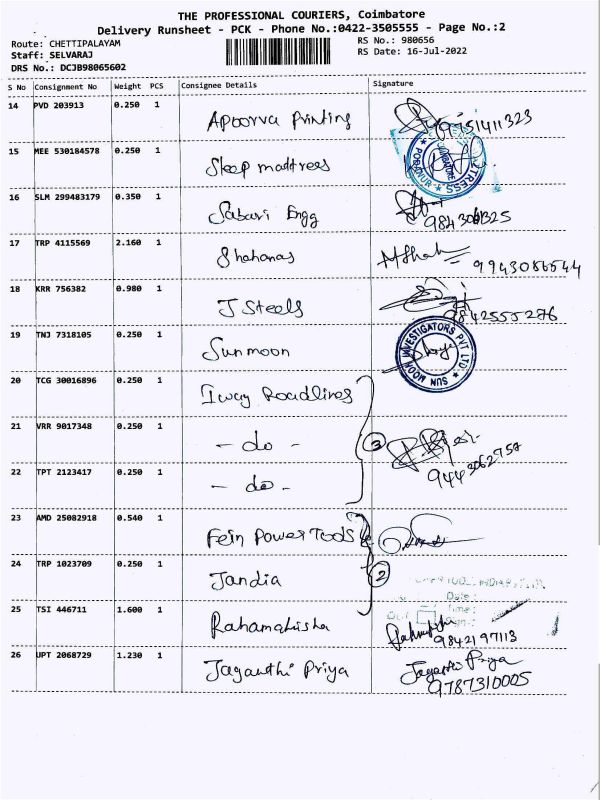 THE PROFESSIONAL COURIERS, Coimbatore
Delivery Runsheet - PCK - Phone No.:0422-3505555 - Page No.:2
Route: CHETTIPALAYAM RS No.: 980656
Staff: SELVARAJ RS Date: 16-Jul-2022
DRS No.: DCJB98065602
S No Consignment No Weight PCS Consignee Details Signature
14 PVD 203913 0.250 1 Apoorva printing 9751411323
15 MEE 530184578 0.250 1 Sleep mattress
16 SLM 299483179 0.350 1 Sabari Engg
17 TRP 4115569 2.160 1 Shahanas 9943086544
18 KRR 756382 0.980 1 J Steels 9842555276
19 TNJ 7318105 0.250 1 Sunmoon SUN MOON INVESTIGATORS PVT LTD
20 TCG 30016896 0.250 1 Iway Roadlines
21 VRR 9017348 0.250 1 - do - 3
9443062757
22 TPT 2123417 0.250 1 - do -
23 AMD 25082918 0.540 1 Fein Power Tools
24 TRP 1023709 0.250 1 Jandia 2
Date:
Time:
25 TSI 446711 1.600 1 9842197113
26 UPT 2068729 1.230 1 Jaganthi Priya 9787310005